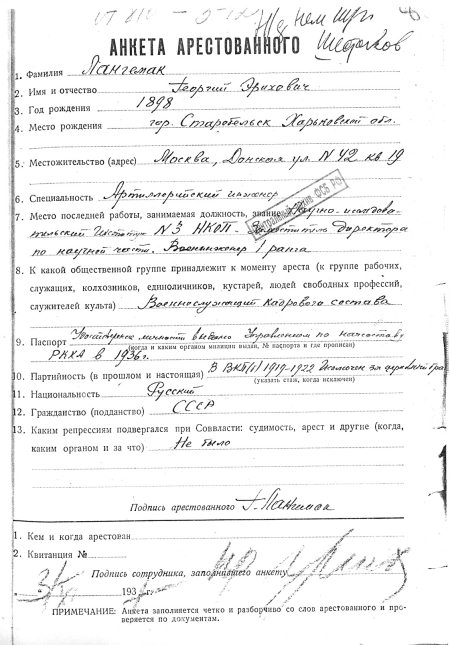 АНКЕТА АРЕСТОВАННОГО
1. Фамилия Лангемак
2. Имя и отчество Георгий Эрихович
3. Год рождения 1898
4. Место рождения гор. Старобельск Харьковской обл.
5. Местожительство (адрес) Москва, Донская ул. N 42 кв 19
6. Специальность Артиллерийский инженер
Центральный архив ФСБ РФ
7. Место последней работы, занимаемая должность, звание Научно-исследова-
тельский Институт N 3 НКОП - Заместитель директора
по научной части. Военинженер 1 ранга
8. К какой общественной группе принадлежит к моменту ареста (к группе рабочих,
служащих, колхозников, единоличников, кустарей, людей свободных профессий,
служителей культа) Военнослужащий кадрового состава
9. Паспорт личности выдано Управлением по начсоставу
(когда и каким органом милиции выдан, № паспорта и где прописан)
РККА в 1936 г.
10. Партийность (в прошлом и настоящая) В ВКП(б) 1919-1922 Исключен за церковный брак
(указать стаж, когда исключен)
11. Национальность Русский
12. Гражданство (подданство) СССР
13. Каким репрессиям подвергался при Соввласти: судимость, арест и другие (когда,
каким органом и за что) Не было
Подпись арестованного Г. Лангемак
1. Кем и когда арестован
2. Квитанция №
Подпись сотрудника, заполнявшего анкету
193
ПРИМЕЧАНИЕ: Анкета заполняется четко и разборчиво со слов арестованного и про-
веряется по документам.